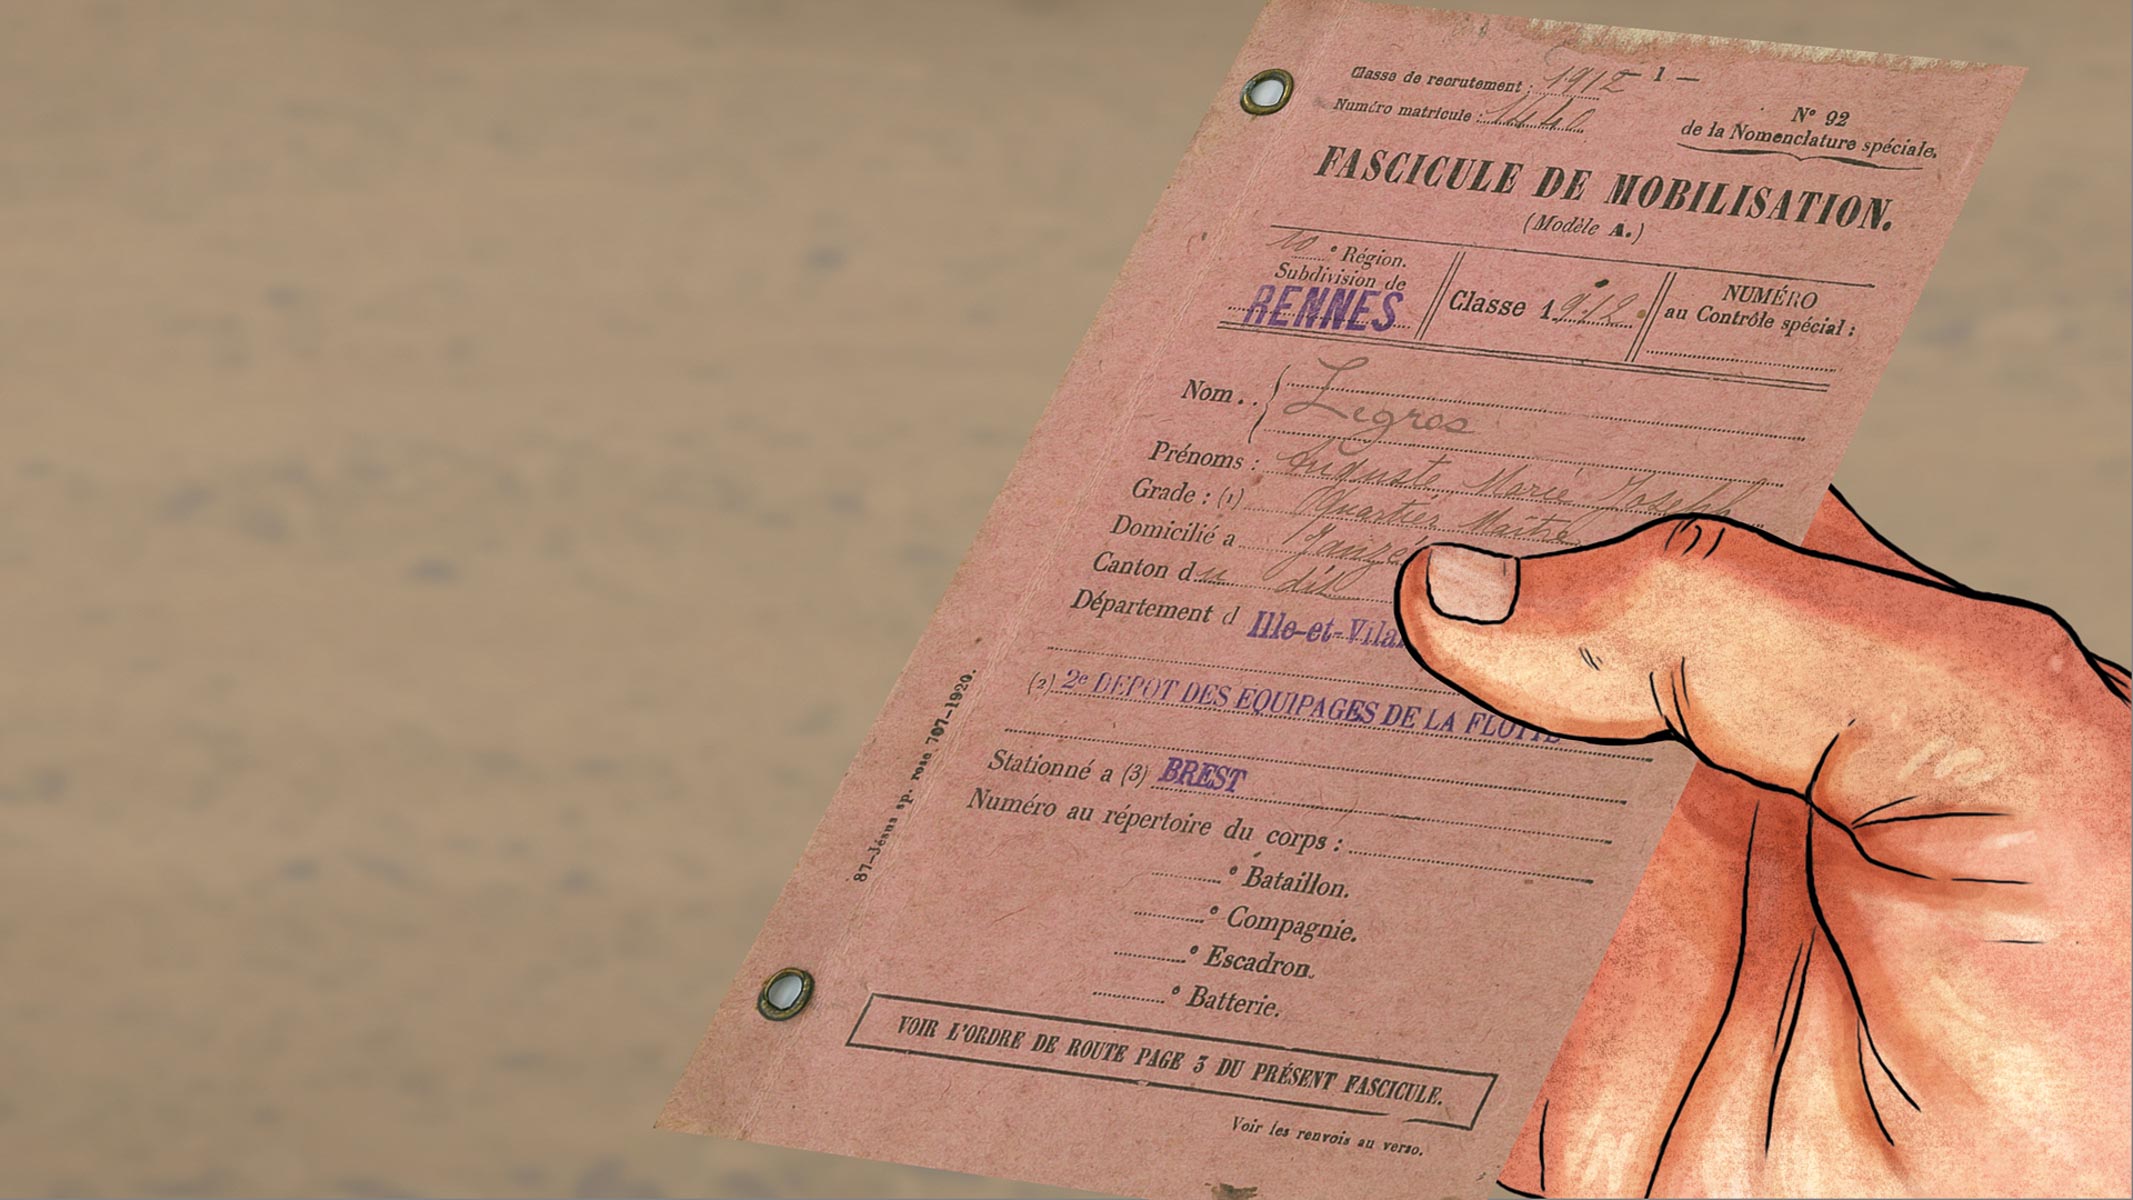 Classe de recrutement : 1912 — 1 —
Numéro matricule : 1440
N° 92
de la Nomenclature spéciale.
FASCICULE DE MOBILISATION.
(Modèle A.)
10e Région.
Subdivision de
RENNES
Classe 1912
NUMÉRO
au Contrôle spécial :
Nom . . Legros
Prénoms : Auguste Marie Joseph
Grade : (1) Quartier Maître
Domicilié a Janzé
Canton du dit
Département d Ille-et-Vilai
(2) 2e DEPOT DES EQUIPAGES DE LA FLOTTE
Stationné a (3) BREST
Numéro au répertoire du corps :
e Bataillon.
e Compagnie.
e Escadron.
e Batterie.
VOIR L'ORDRE DE ROUTE PAGE 3 DU PRÉSENT FASCICULE.
Voir les renvois au verso.
87-Jésus sp. rose 707-1920.